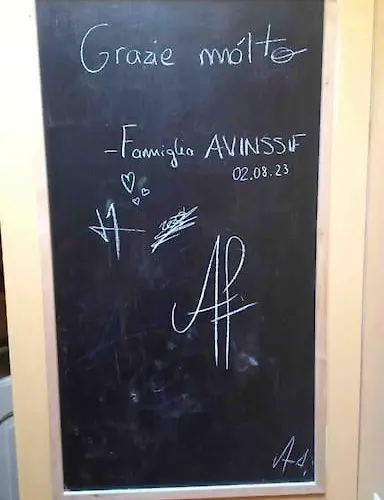 Grazie mólto
-Famiglia AVINSSIF
02.08.23